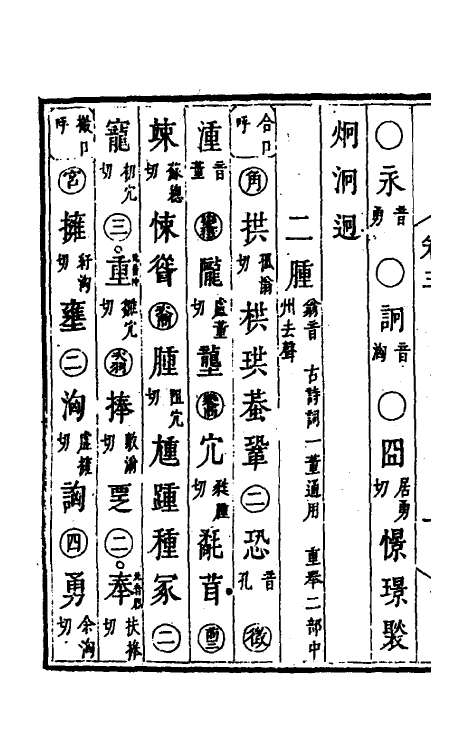 ○永音勇○詗音洶○囧居勇切憬璟褧
炯泂迥
二腫翁音州去聲古詩詞一董通用重舉二部中
合口呼角拱孤滃切栱珙蛬鞏二恐音孔徵
湩音董隴盧董切壟宂氄茸商三
竦蘇總切悚聳腫阻宂切尰踵種冢二
寵初宂切三重雛宂切羽捧敷滃切覂二奉扶捧切
撇口呼宮擁切壅二洶虛擁切詾四勇余洶切